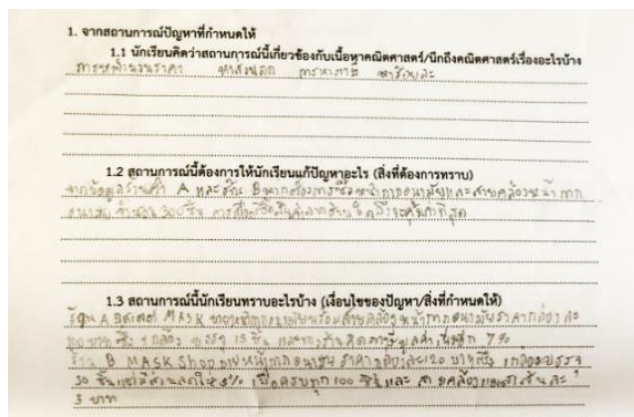 1. จากสถานการณ์ปัญหาที่กำหนดให้
1.1 นักเรียนคิดว่าสถานการณ์นี้เกี่ยวข้องกับเนื้อหาคณิตศาสตร์/นึกถึงคณิตศาสตร์เรื่องอะไรบ้าง
หาส่วนลด การหาภาษี หาร้อยละ
1.2 สถานการณ์นี้ต้องการให้นักเรียนแก้ปัญหาอะไร (สิ่งที่ต้องการทราบ)
จากข้อมูลร้านค้า A และร้าน B หากต้องการซื้อหน้ากากอนามัยและสายคล้องหน้ากาก
อนามัย จำนวน 300 ชิ้น
1.3 สถานการณ์นี้นักเรียนทราบอะไรบ้าง (เงื่อนไขของปัญหา/สิ่งที่กำหนดให้)
ร้าน A MASK ขายหน้ากากอนามัยพร้อมสายคล้องหน้ากากอนามัยราคากล่องละ
1 กล่อง บรรจุ 15 ชิ้น และทางร้านคิดภาษีมูลค่าเพิ่มอีก 7%
ร้าน B MASK Shop ขายหน้ากากอนามัย ราคากล่องละ 120 บาท ซึ่ง 1 กล่องบรรจุ
30 ชิ้น แต่มีส่วนลดให้ 5% เมื่อครบทุก 100 ชิ้น และ สายคล้องแมสเส้นละ
5 บาท